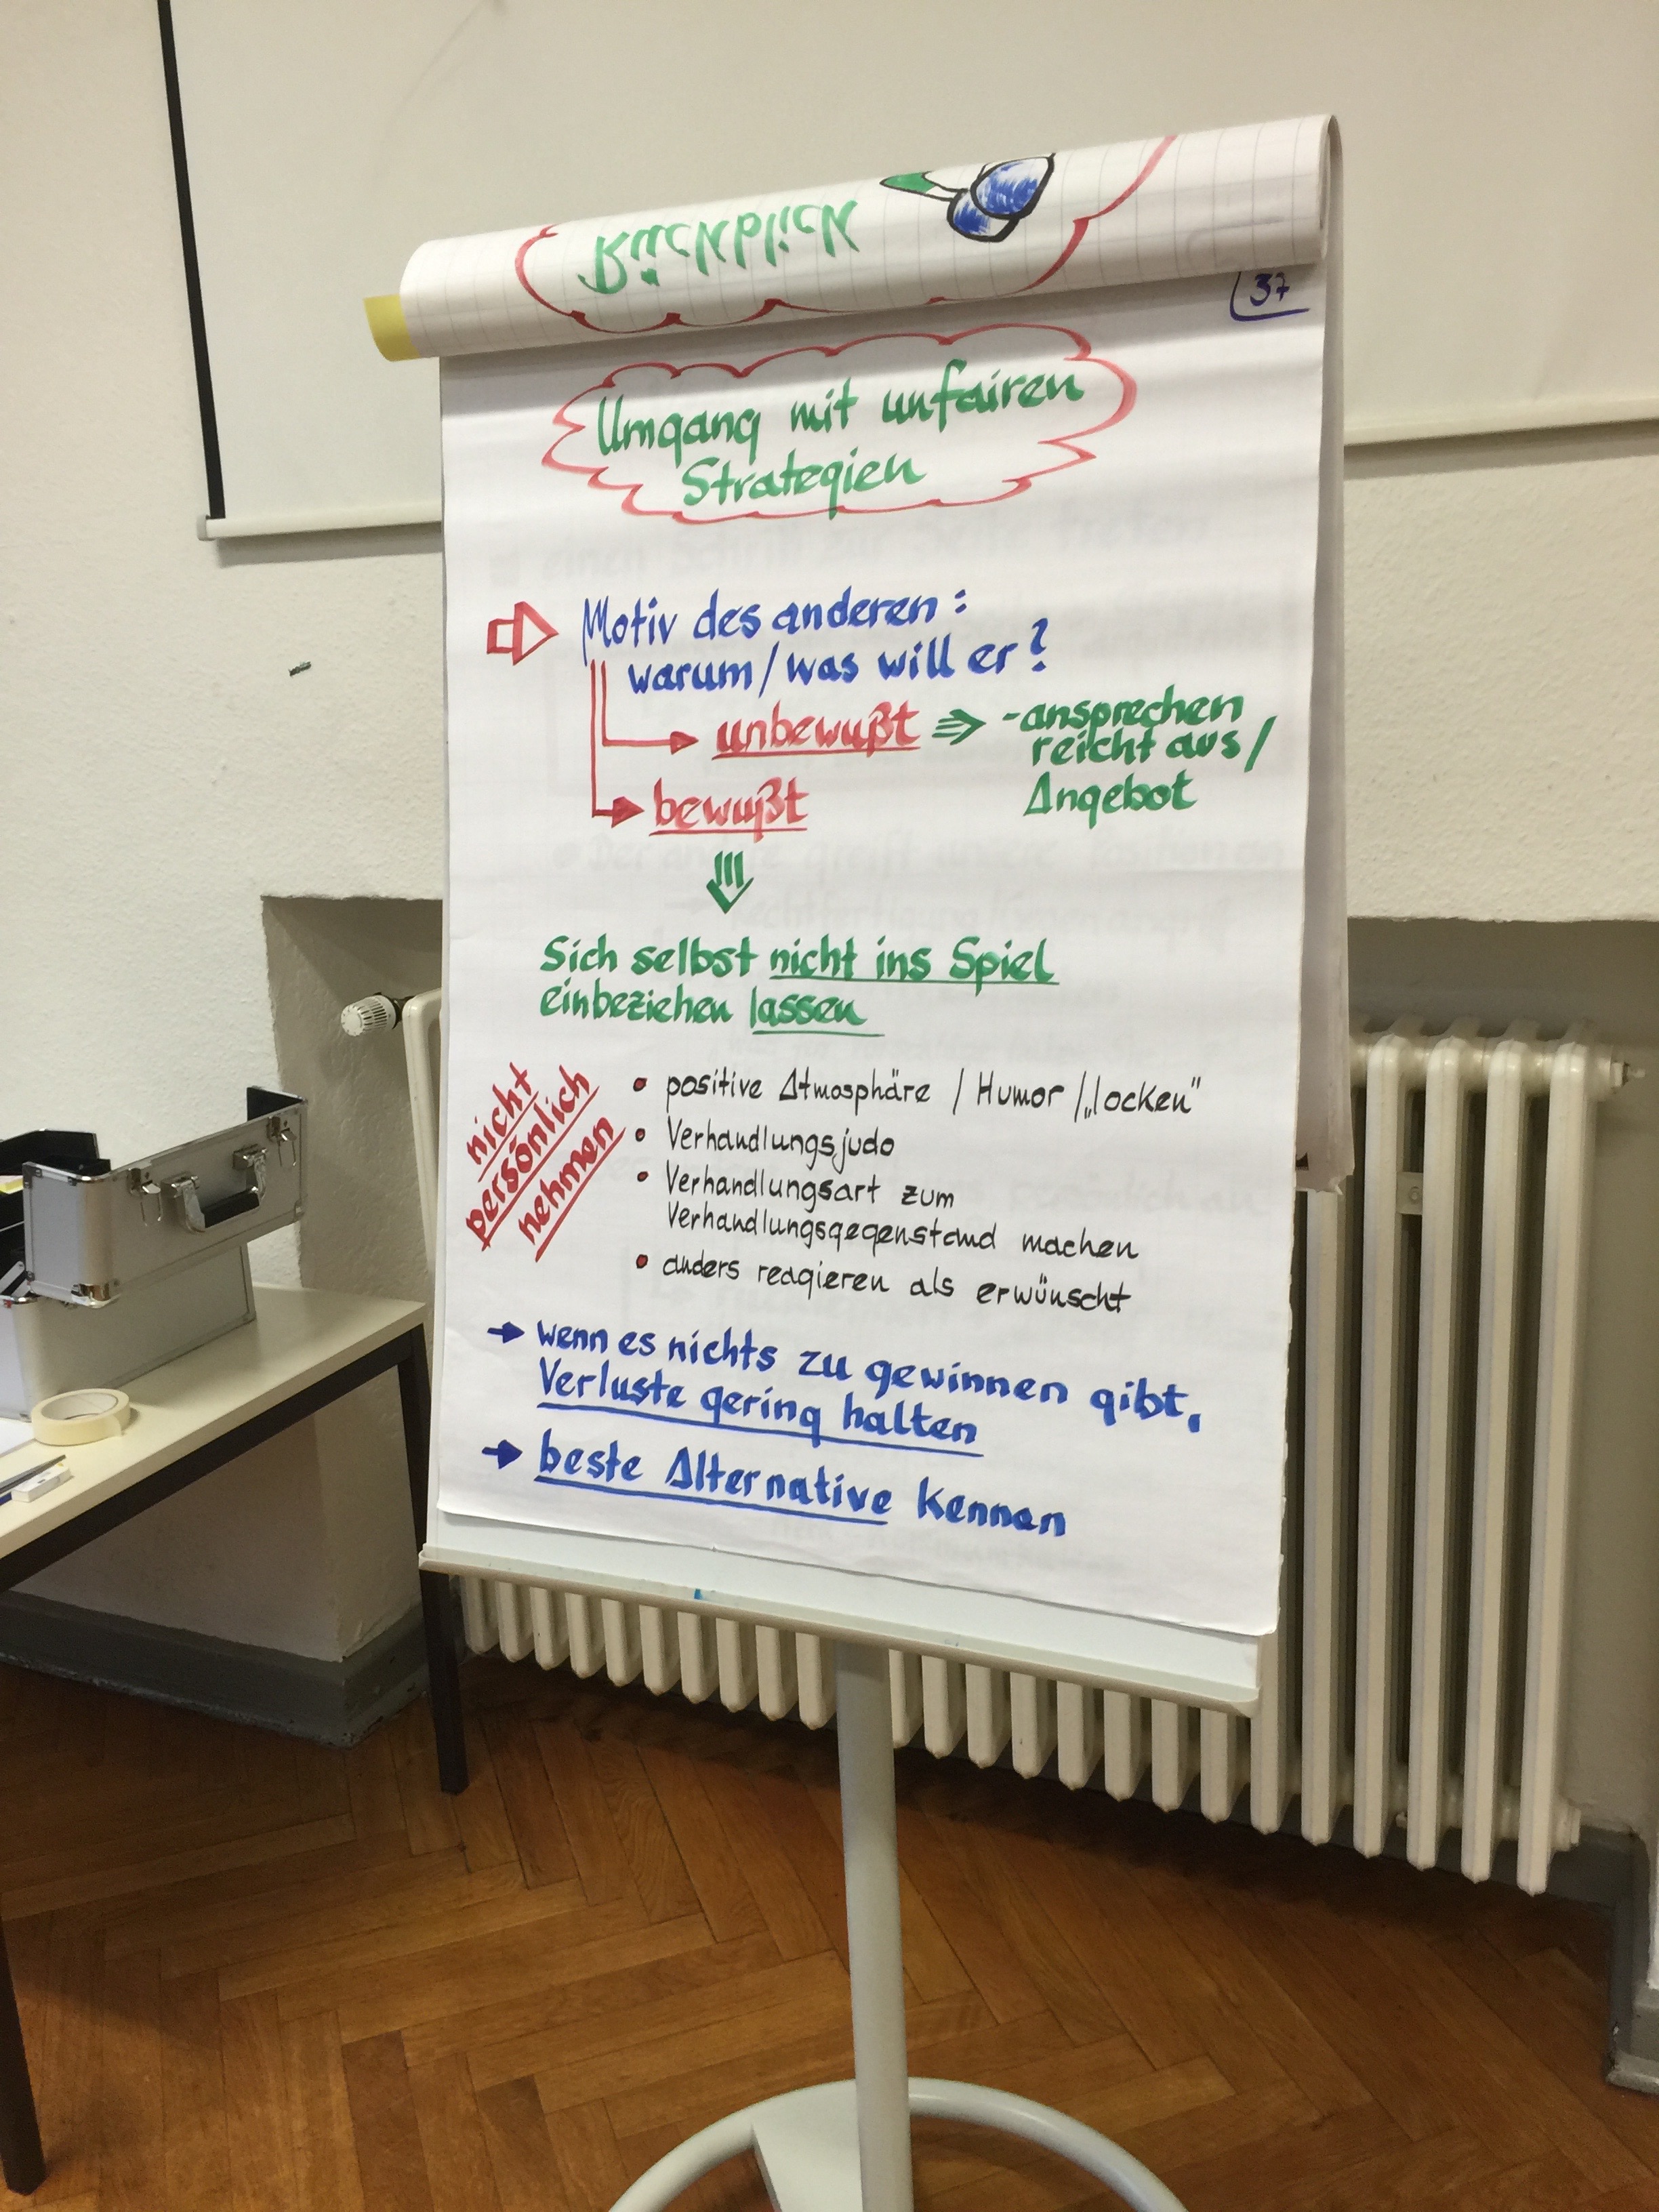 Rückblick
37
Umgang mit unfairen
Strategien
Motiv des anderen:
warum/was will er?
unbewußt
-ansprechen
reicht aus/
Angebot
bewußt
Sich selbst nicht ins Spiel
einbeziehen lassen
nicht
persönlich
nehmen
• positive Atmosphäre / Humor / „locken"
• Verhandlungsjudo
• Verhandlungsart zum
Verhandlungsgegenstand machen
• anders reagieren als erwünscht
→ wenn es nichts zu gewinnen gibt,
Verluste gering halten
→ beste Alternative kennen